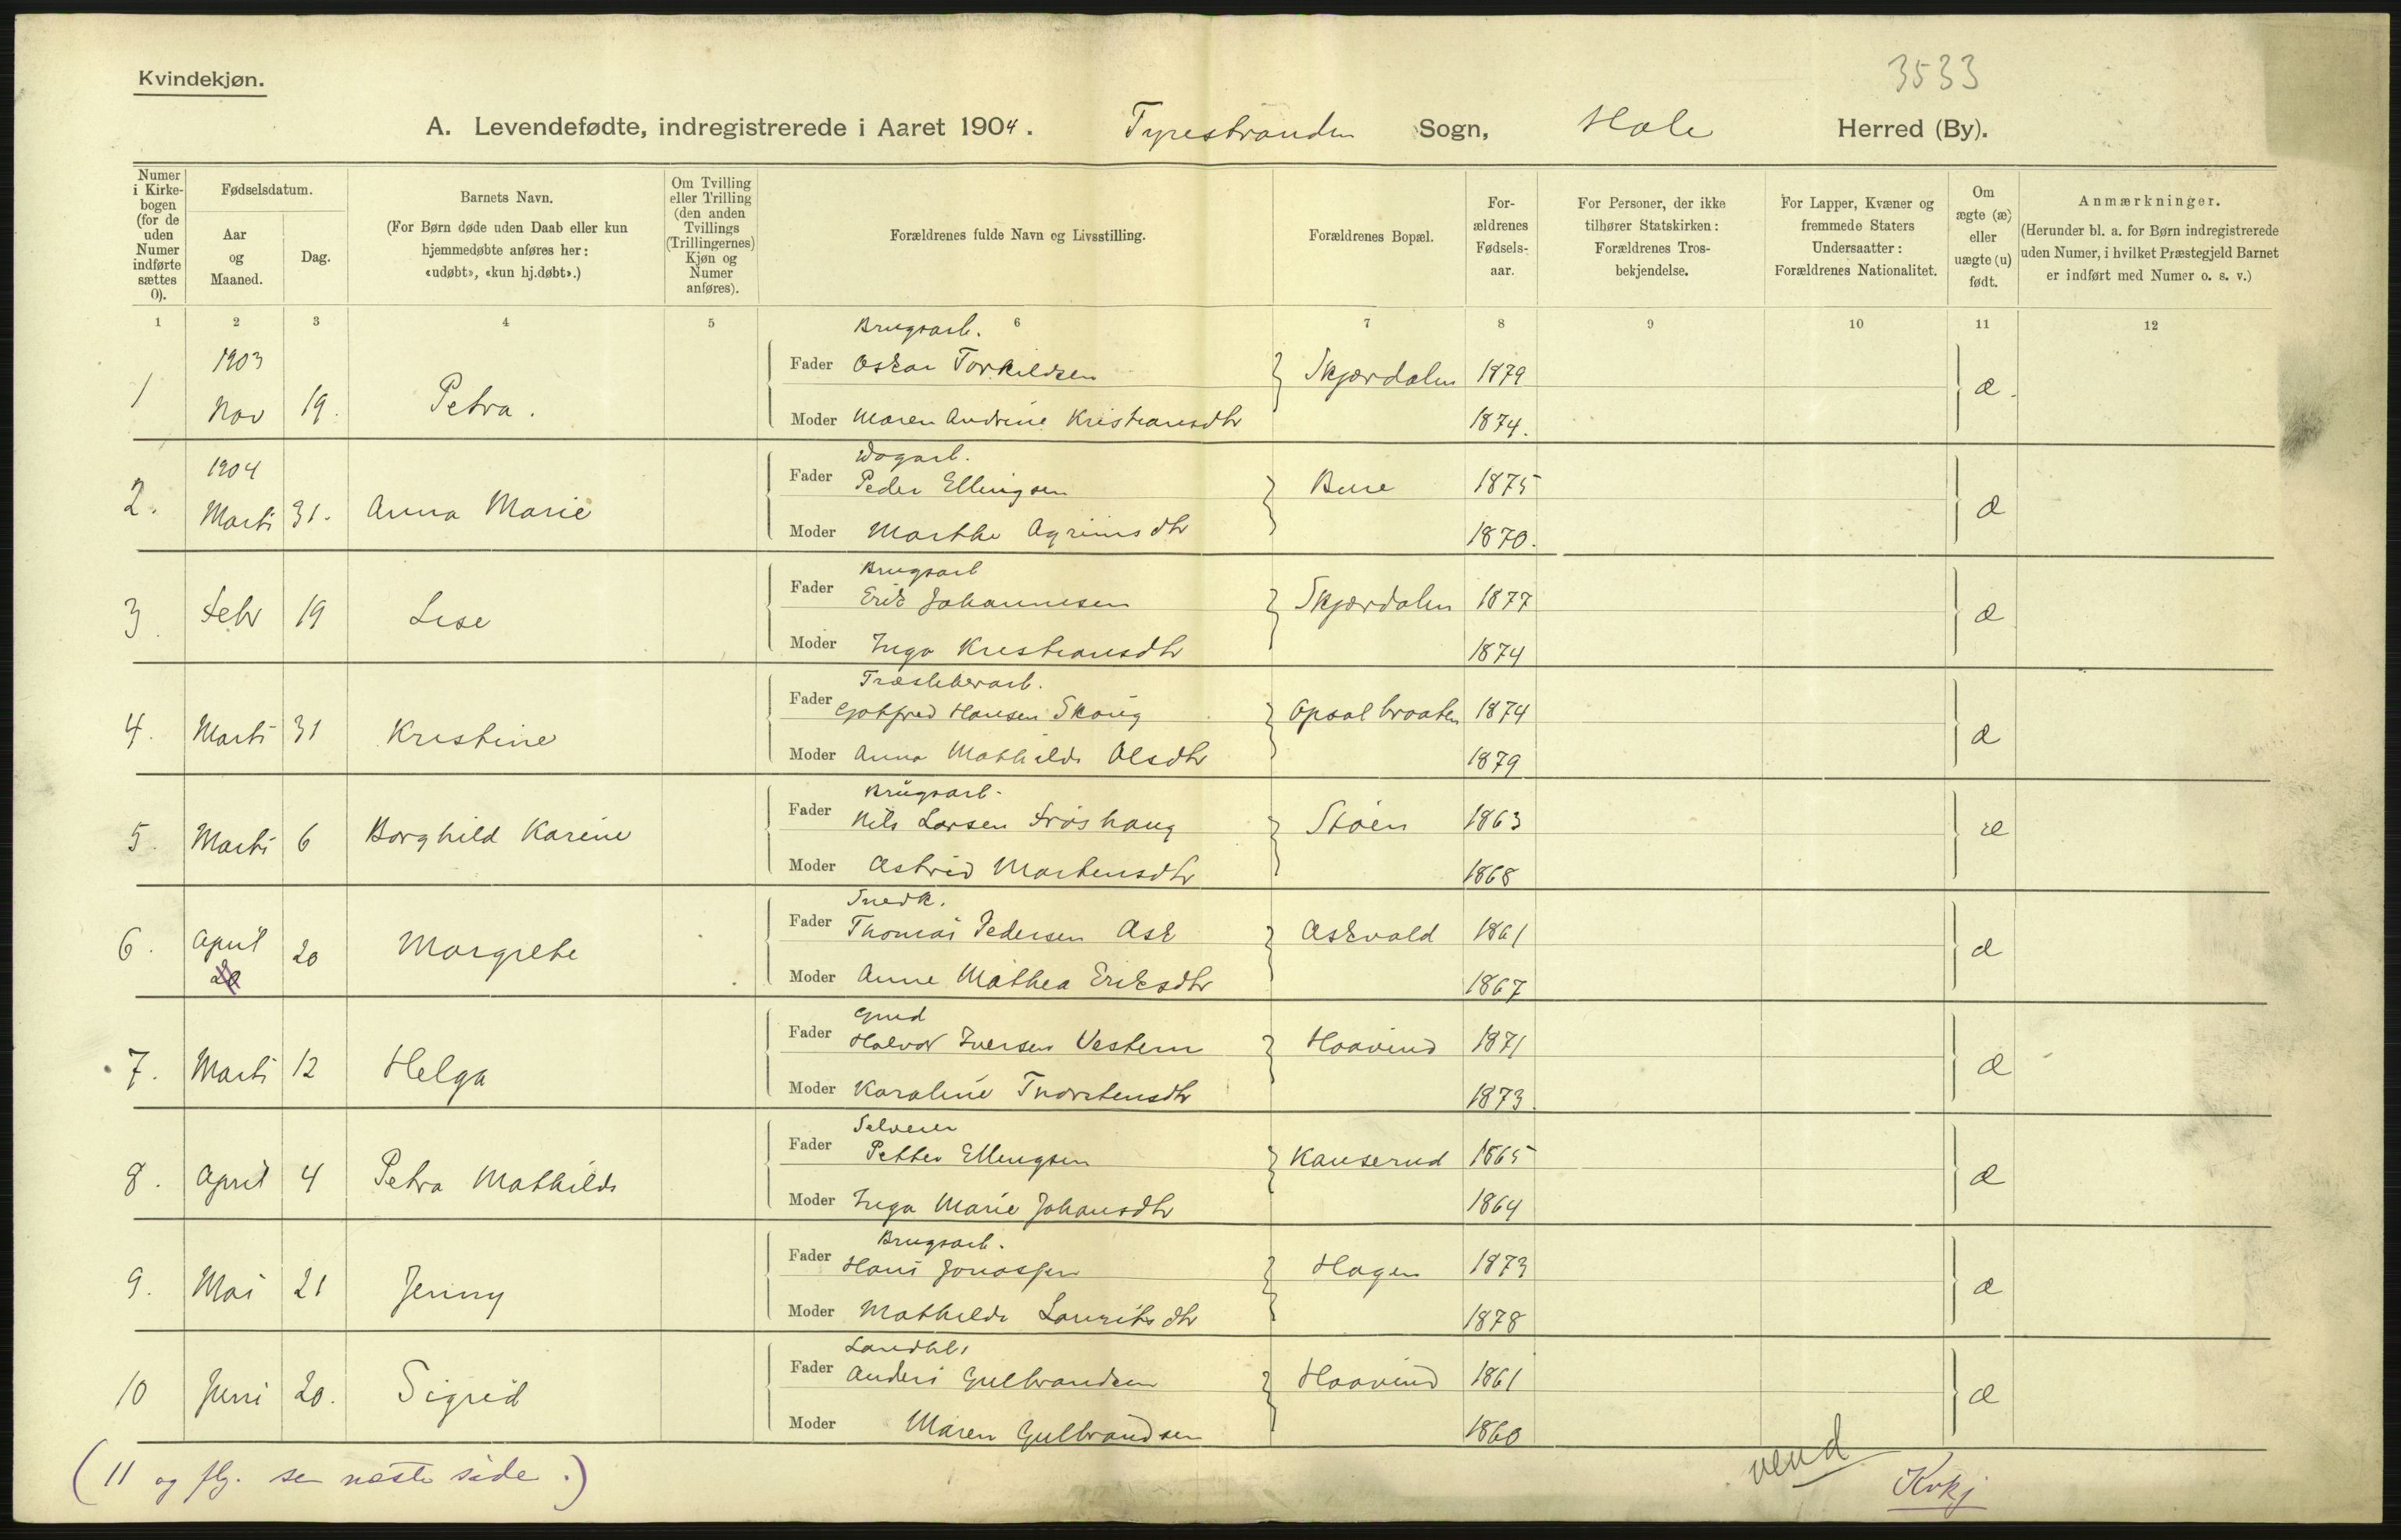 3533
Kvindekjøn.
A. Levendefødte, indregistrerede i Aaret 1904. Tyrestranden Sogn, Hole Herred (By).
Numer i Kirkebogen (for de uden Numer indførte sættes 0).
Fødselsdatum.
Aar og Maaned.
Dag.
Barnets Navn.
(For Børn døde uden Daab eller kun hjemmedøbte anføres her: «udøbt», «kun hj.døbt».)
Om Tvilling eller Trilling (den anden Tvillings (Trillingernes) Kjøn og Numer anføres).
Forældrenes fulde Navn og Livsstilling.
Forældrenes Bopæl.
Forældrenes Fødselsaar.
For Personer, der ikke tilhører Statskirken: Forældrenes Trosbekjendelse.
For Lapper, Kvæner og fremmede Staters Undersaatter: Forældrenes Nationalitet.
Om ægte (æ) eller uægte (u) født.
Anmærkninger.
(Herunder bl. a. for Børn indregistrerede uden Numer, i hvilket Præstegjeld Barnet er indført med Numer o. s. v.)
1 2 3 4 5 6 7 8 9 10 11 12
Brugsarb.
1 1903 Nov 19. Petra. Fader Oskar Torkildsen Skjærdalen 1879 æ.
Moder Maren Andrine Kristiansdtr 1874.
Dagarb.
2. 1904 Marts 31. Anna Marie Fader Peder Ellingsen Bure 1875 æ
Moder Marthe Agrimsdtr 1870.
Brugsarb
3. Febr 19 Lise Fader Erik Johannesen Skjærdalen 1877 æ
Moder Inga Kristiansdtr 1874
Træsliberarb.
4. Marts 31 Kristine Fader Gotfred Hansen Skoug Opsalbraaten 1874 æ
Moder Anna Mathilde Olsdtr 1879
Brugsarb.
5. Marts 6 Borghild Karine Fader Nils Larsen Frøshaug Støen 1863 æ
Moder Astrid Martensdtr 1868
Snedk.
6. April 20 Margrethe Fader Thomas Pedersen Ask Askvald 1861 æ
Moder Anne Mathea Eriksdtr 1867
Gmd
7. Marts 12 Helga Fader Halvor Iversen Vestern Haavind 1871 æ
Moder Karoline Thorstensdtr 1873.
Selveier
8. April 4 Petra Mathilde Fader Petter Ellingsen Kauserud 1865 æ
Moder Inga Marie Johansdtr 1864
Brugsarb.
9. Mai 21 Jenny Fader Hans Jonassen Hagen 1873 æ
Moder Mathilde Lauritsdtr 1878
Landhl.
10 Juni 20. Sigrid Fader Anders Gulbrandsen Haavind 1861 æ
Moder Maren Gulbrandsen 1860
(11 og flg. se næste side.)
vend
Kvkj